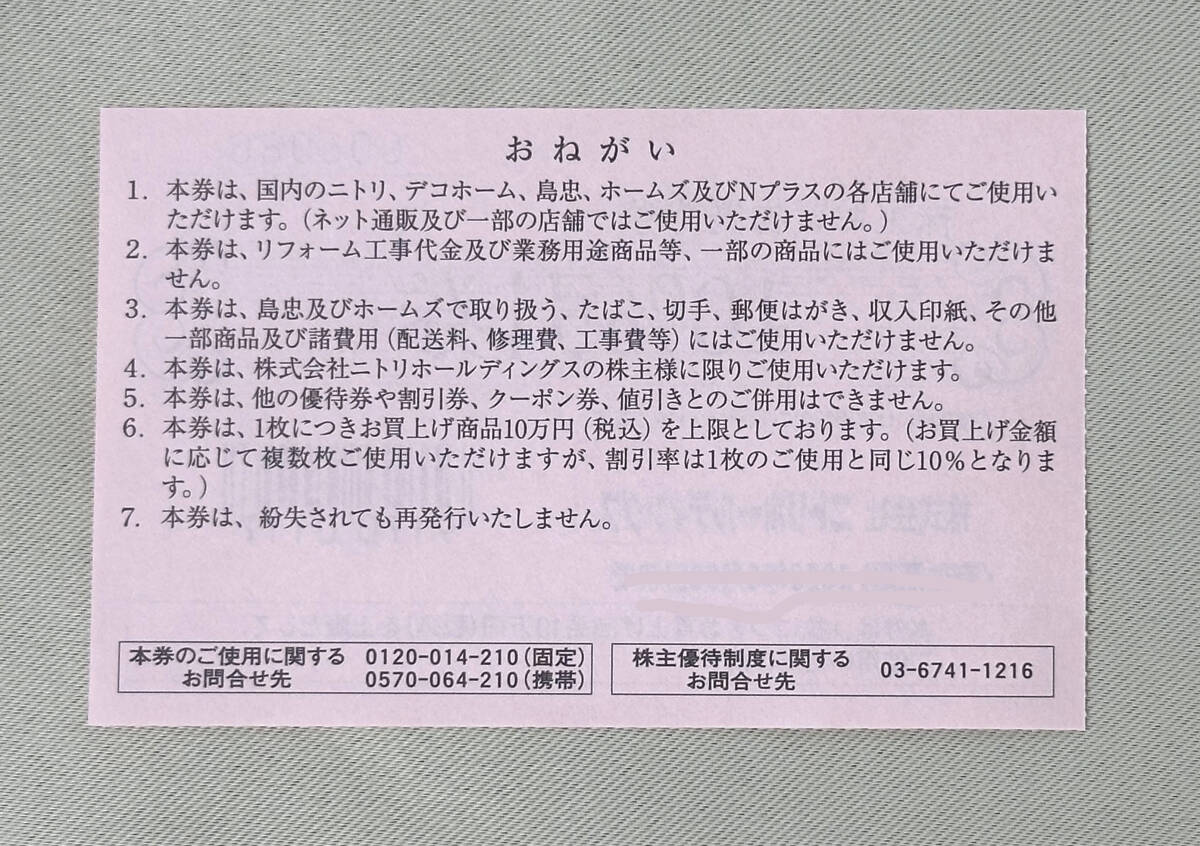 おねがい
1. 本券は、国内のニトリ、デコホーム、島忠、ホームズ及びNプラスの各店舗にてご使用い
ただけます。（ネット通販及び一部の店舗ではご使用いただけません。）
2. 本券は、リフォーム工事代金及び業務用途商品等、一部の商品にはご使用いただけま
せん。
3. 本券は、島忠及びホームズで取り扱う、たばこ、切手、郵便はがき、収入印紙、その他
一部商品及び諸費用（配送料、修理費、工事費等）にはご使用いただけません。
4. 本券は、株式会社ニトリホールディングスの株主様に限りご使用いただけます。
5. 本券は、他の優待券や割引券、クーポン券、値引きとのご併用はできません。
6. 本券は、1枚につきお買上げ商品10万円（税込）を上限としております。（お買上げ金額
に応じて複数枚ご使用いただけますが、割引率は1枚のご使用と同じ10％となりま
す。）
7. 本券は、紛失されても再発行いたしません。
本券のご使用に関する 0120-014-210（固定）
お問合せ先 0570-064-210（携帯）
株主優待制度に関する
お問合せ先
03-6741-1216